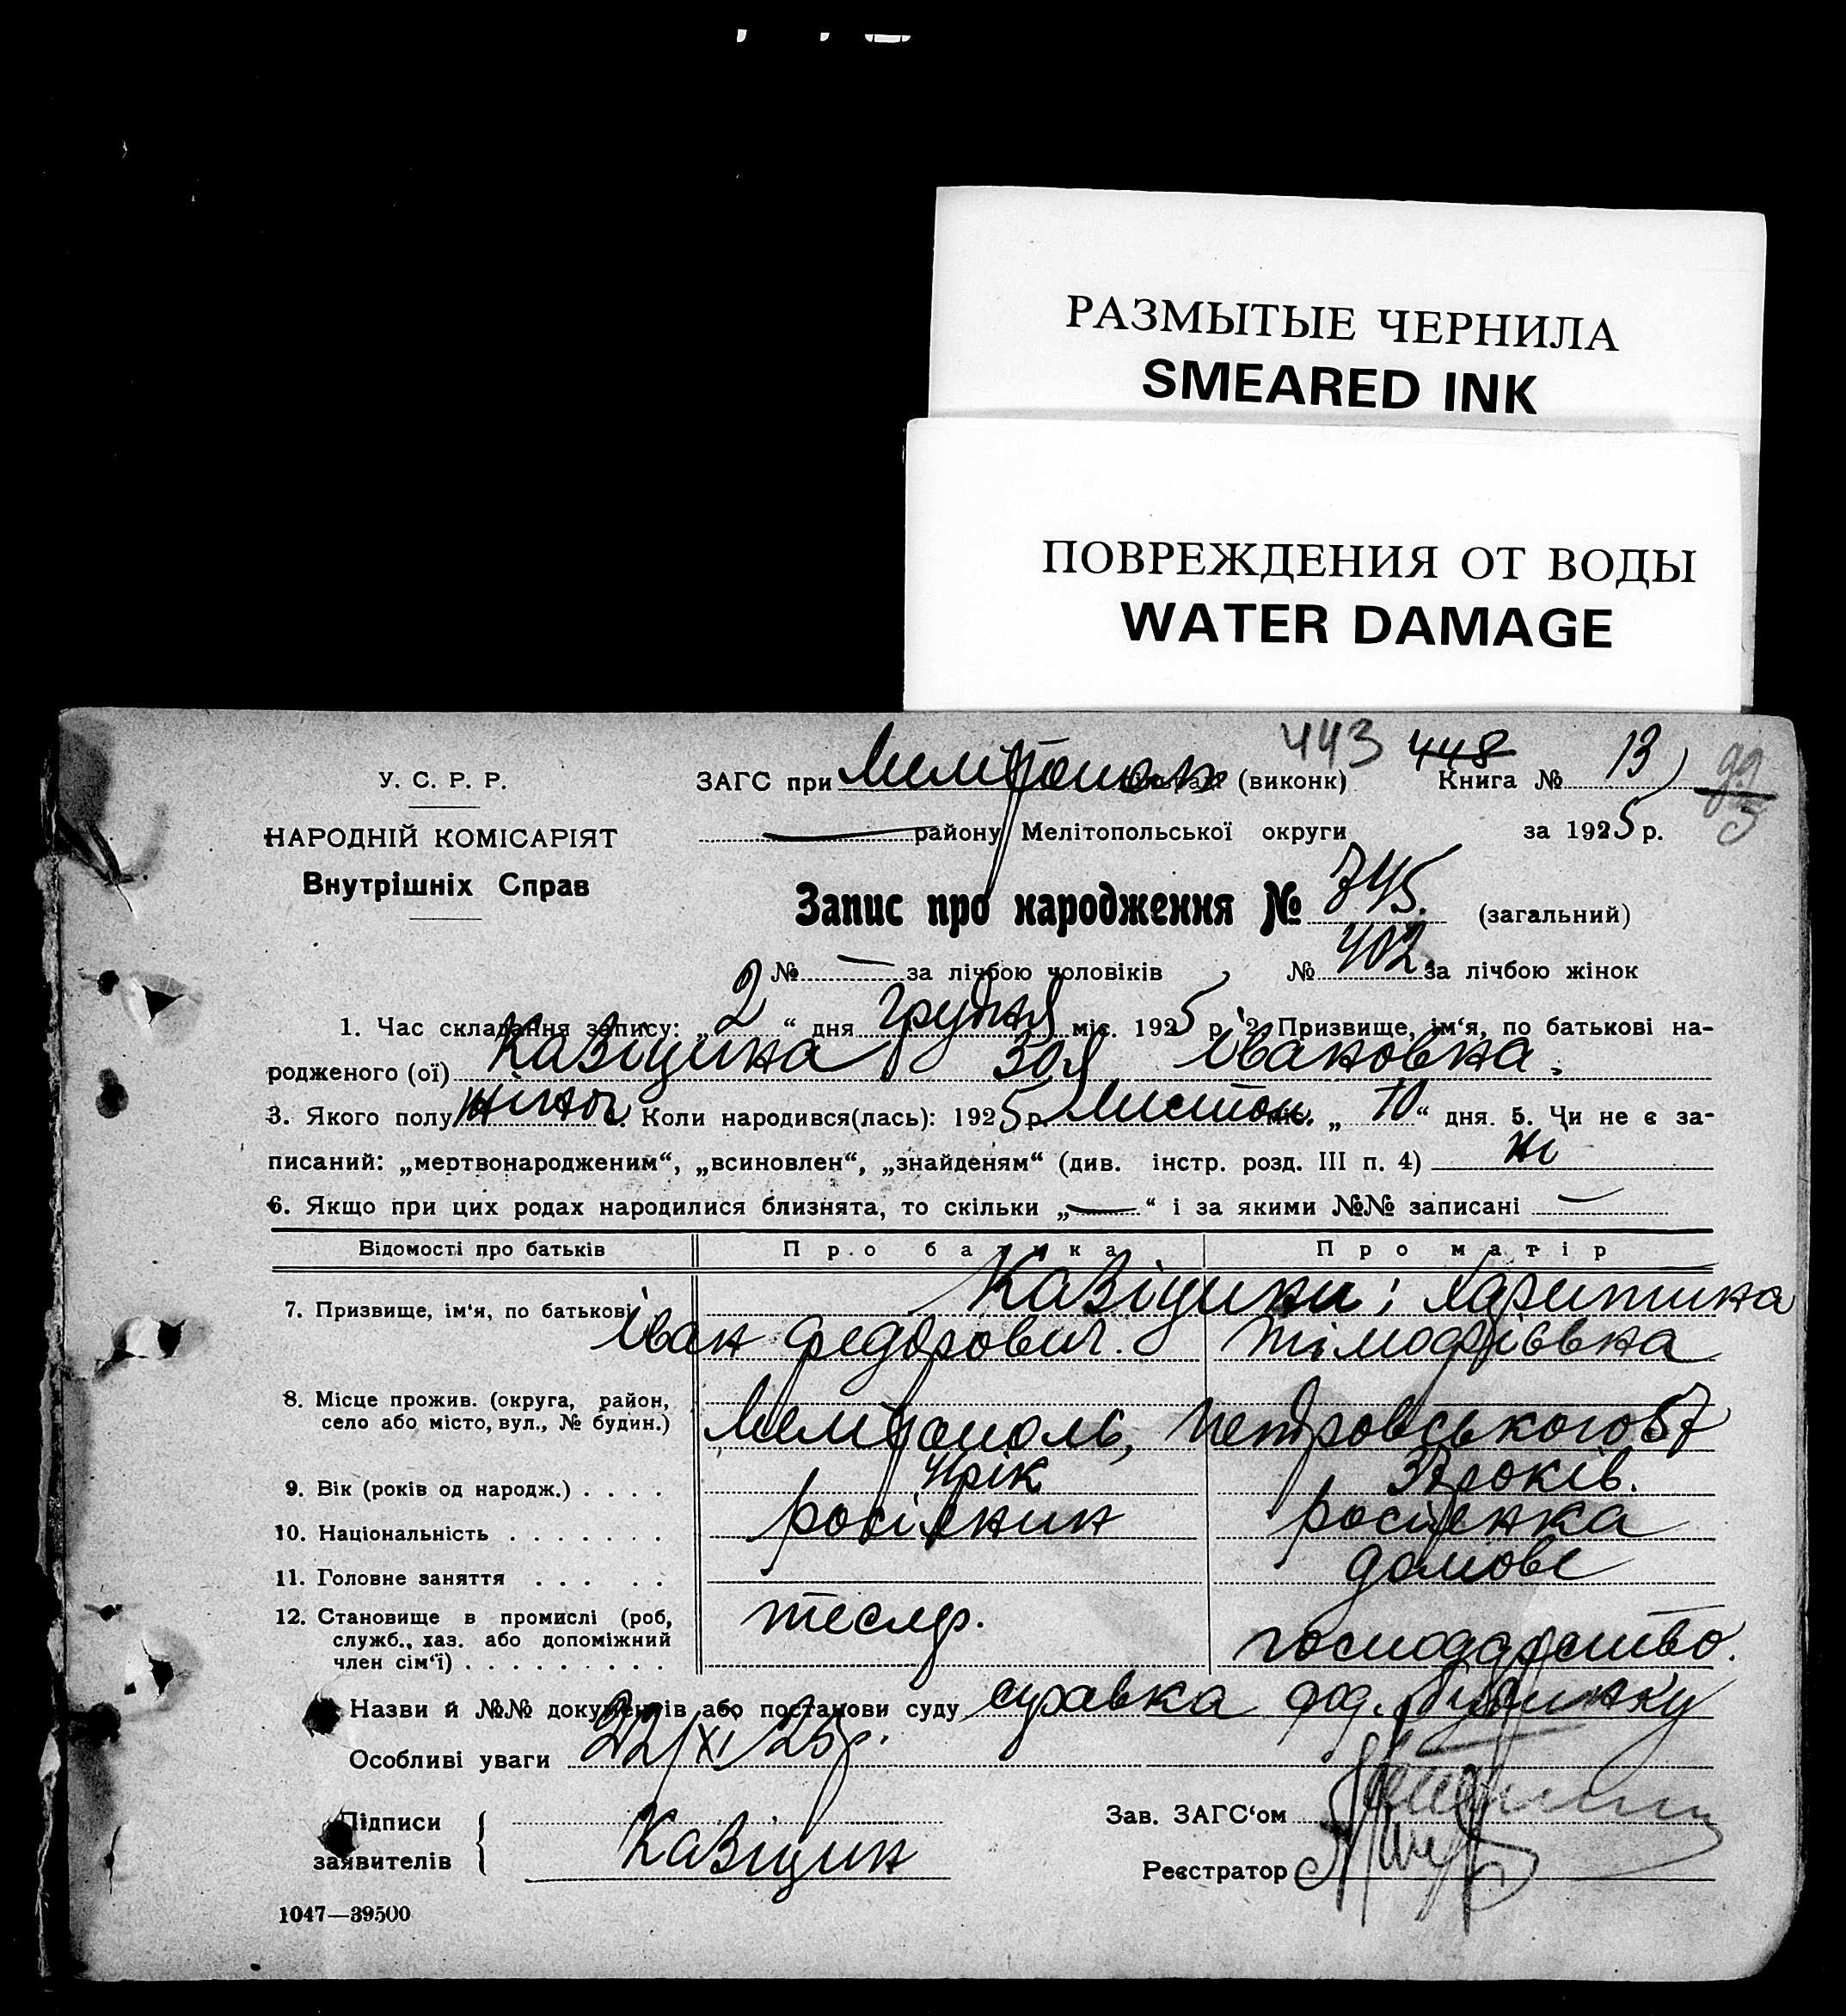 РАЗМЫТЫЕ ЧЕРНИЛА
SMEARED INK
ПОВРЕЖДЕНИЯ ОТ ВОДЫ
WATER DAMAGE
443 448
У. С. Р. Р. ЗАГС при Меліт (виконк) Книга № 13 99/3
району Мелітопольської округи за 1925 р.
НАРОДНІЙ КОМІСАРІЯТ
Внутрішніх Справ
Запис про народження № 745. (загальний)
№ — за лічбою чоловіків № 402 за лічбою жінок
1. Час складання запису: „2“ дня Грудня міс. 1925 р. 2. Призвище, ім‘я, по батькові на-
родженого (ої) Казіцина Зоя Івановна.
3. Якого полу жіноч. Коли народився(лась): 1925 р. Листоп. міс. „10“ дня. 5. Чи не є за-
писаний: „мертвонародженим“, „всиновлен“, „знайденям“ (див. інстр. розд. III п. 4) ні
6. Якщо при цих родах народилися близнята, то скільки „—“ і за якими №№ записані —
Відомості про батьків Про батька Про матір
7. Призвище, ім‘я, по батькові Казіцини: Харитина
Іван Федорович. Тімофіївка
8. Місце прожив. (округа, район,
село або місто, вул., № будин.) Мелітополь, Петровського 57
9. Вік (років од народж.) . . . . 41 рік 37 років.
10. Національність . . . . . . . росіянин росіянка
11. Головне заняття . . . . . домове
12. Становище в промислі (роб, тесляр.
служб., хаз. або допоміжний господарство.
член сім‘ї) . . . . . . . . .
Назви й №№ документів або постанови суду справка род. будинку
Особливі уваги 22/XI 25р.
Підписи
заявителів Казіцин
Зав. ЗАГС‘ом
Реєстратор
1047—39500